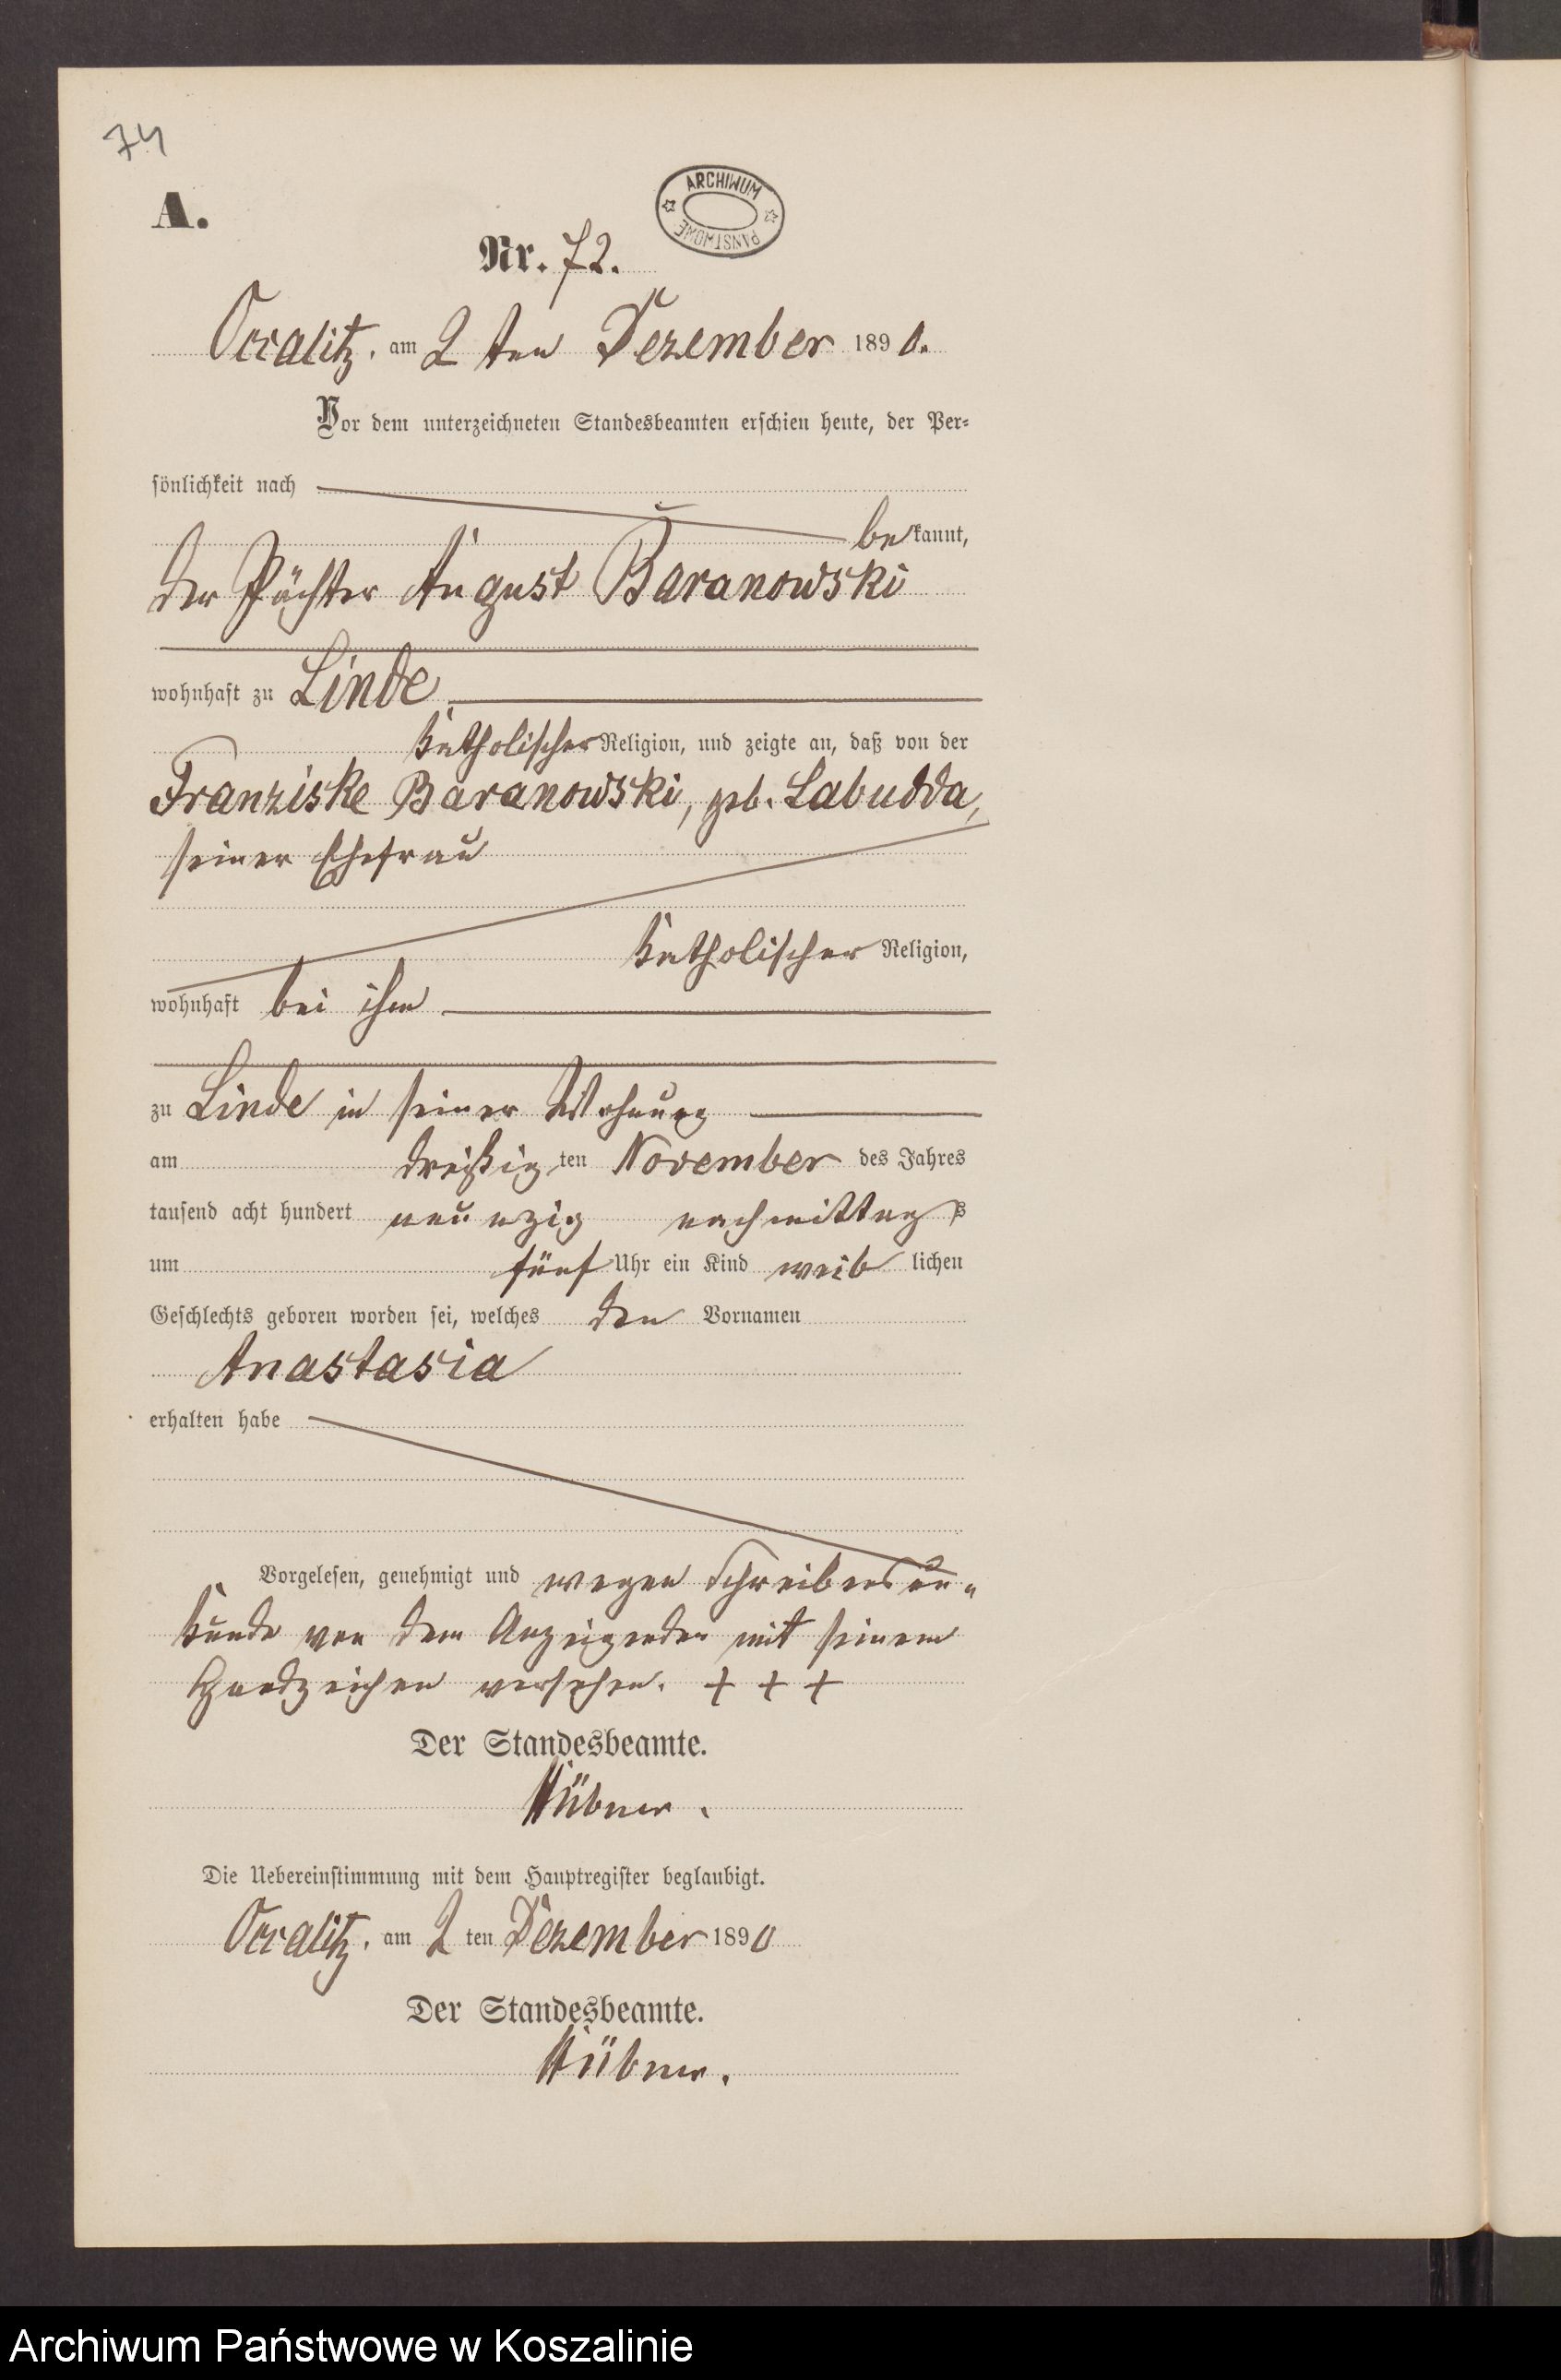 74
A.
ARCHIWUM PAŃSTWOWE
Nr. 72.
Occalitz, am 2 ten Dezember 1890.
Vor dem unterzeichneten Standesbeamten erschien heute, der Per-
sönlichkeit nach
bekannt,
der Pächter August Baranowski
wohnhaft zu Linde
katholischer Religion, und zeigte an, daß von der
Franziske Baranowski, geb. Labudda,
seiner Ehefrau
katholischer Religion,
wohnhaft bei ihm
zu Linde in seiner Wohnung
am dreißigten November des Jahres
tausend acht hundert neunzig nachmittags
um fünf Uhr ein Kind weiblichen
Geschlechts geboren worden sei, welches den Vornamen
Anastasia
erhalten habe
Vorgelesen, genehmigt und wegen Schreibensun-
kunde von dem Anzeigenden mit seinem
Handzeichen versehen. + + +
Der Standesbeamte.
Hübner.
Die Uebereinstimmung mit dem Hauptregister beglaubigt.
Occalitz, am 2 ten Dezember 1890
Der Standesbeamte.
Hübner.
Archiwum Państwowe w Koszalinie